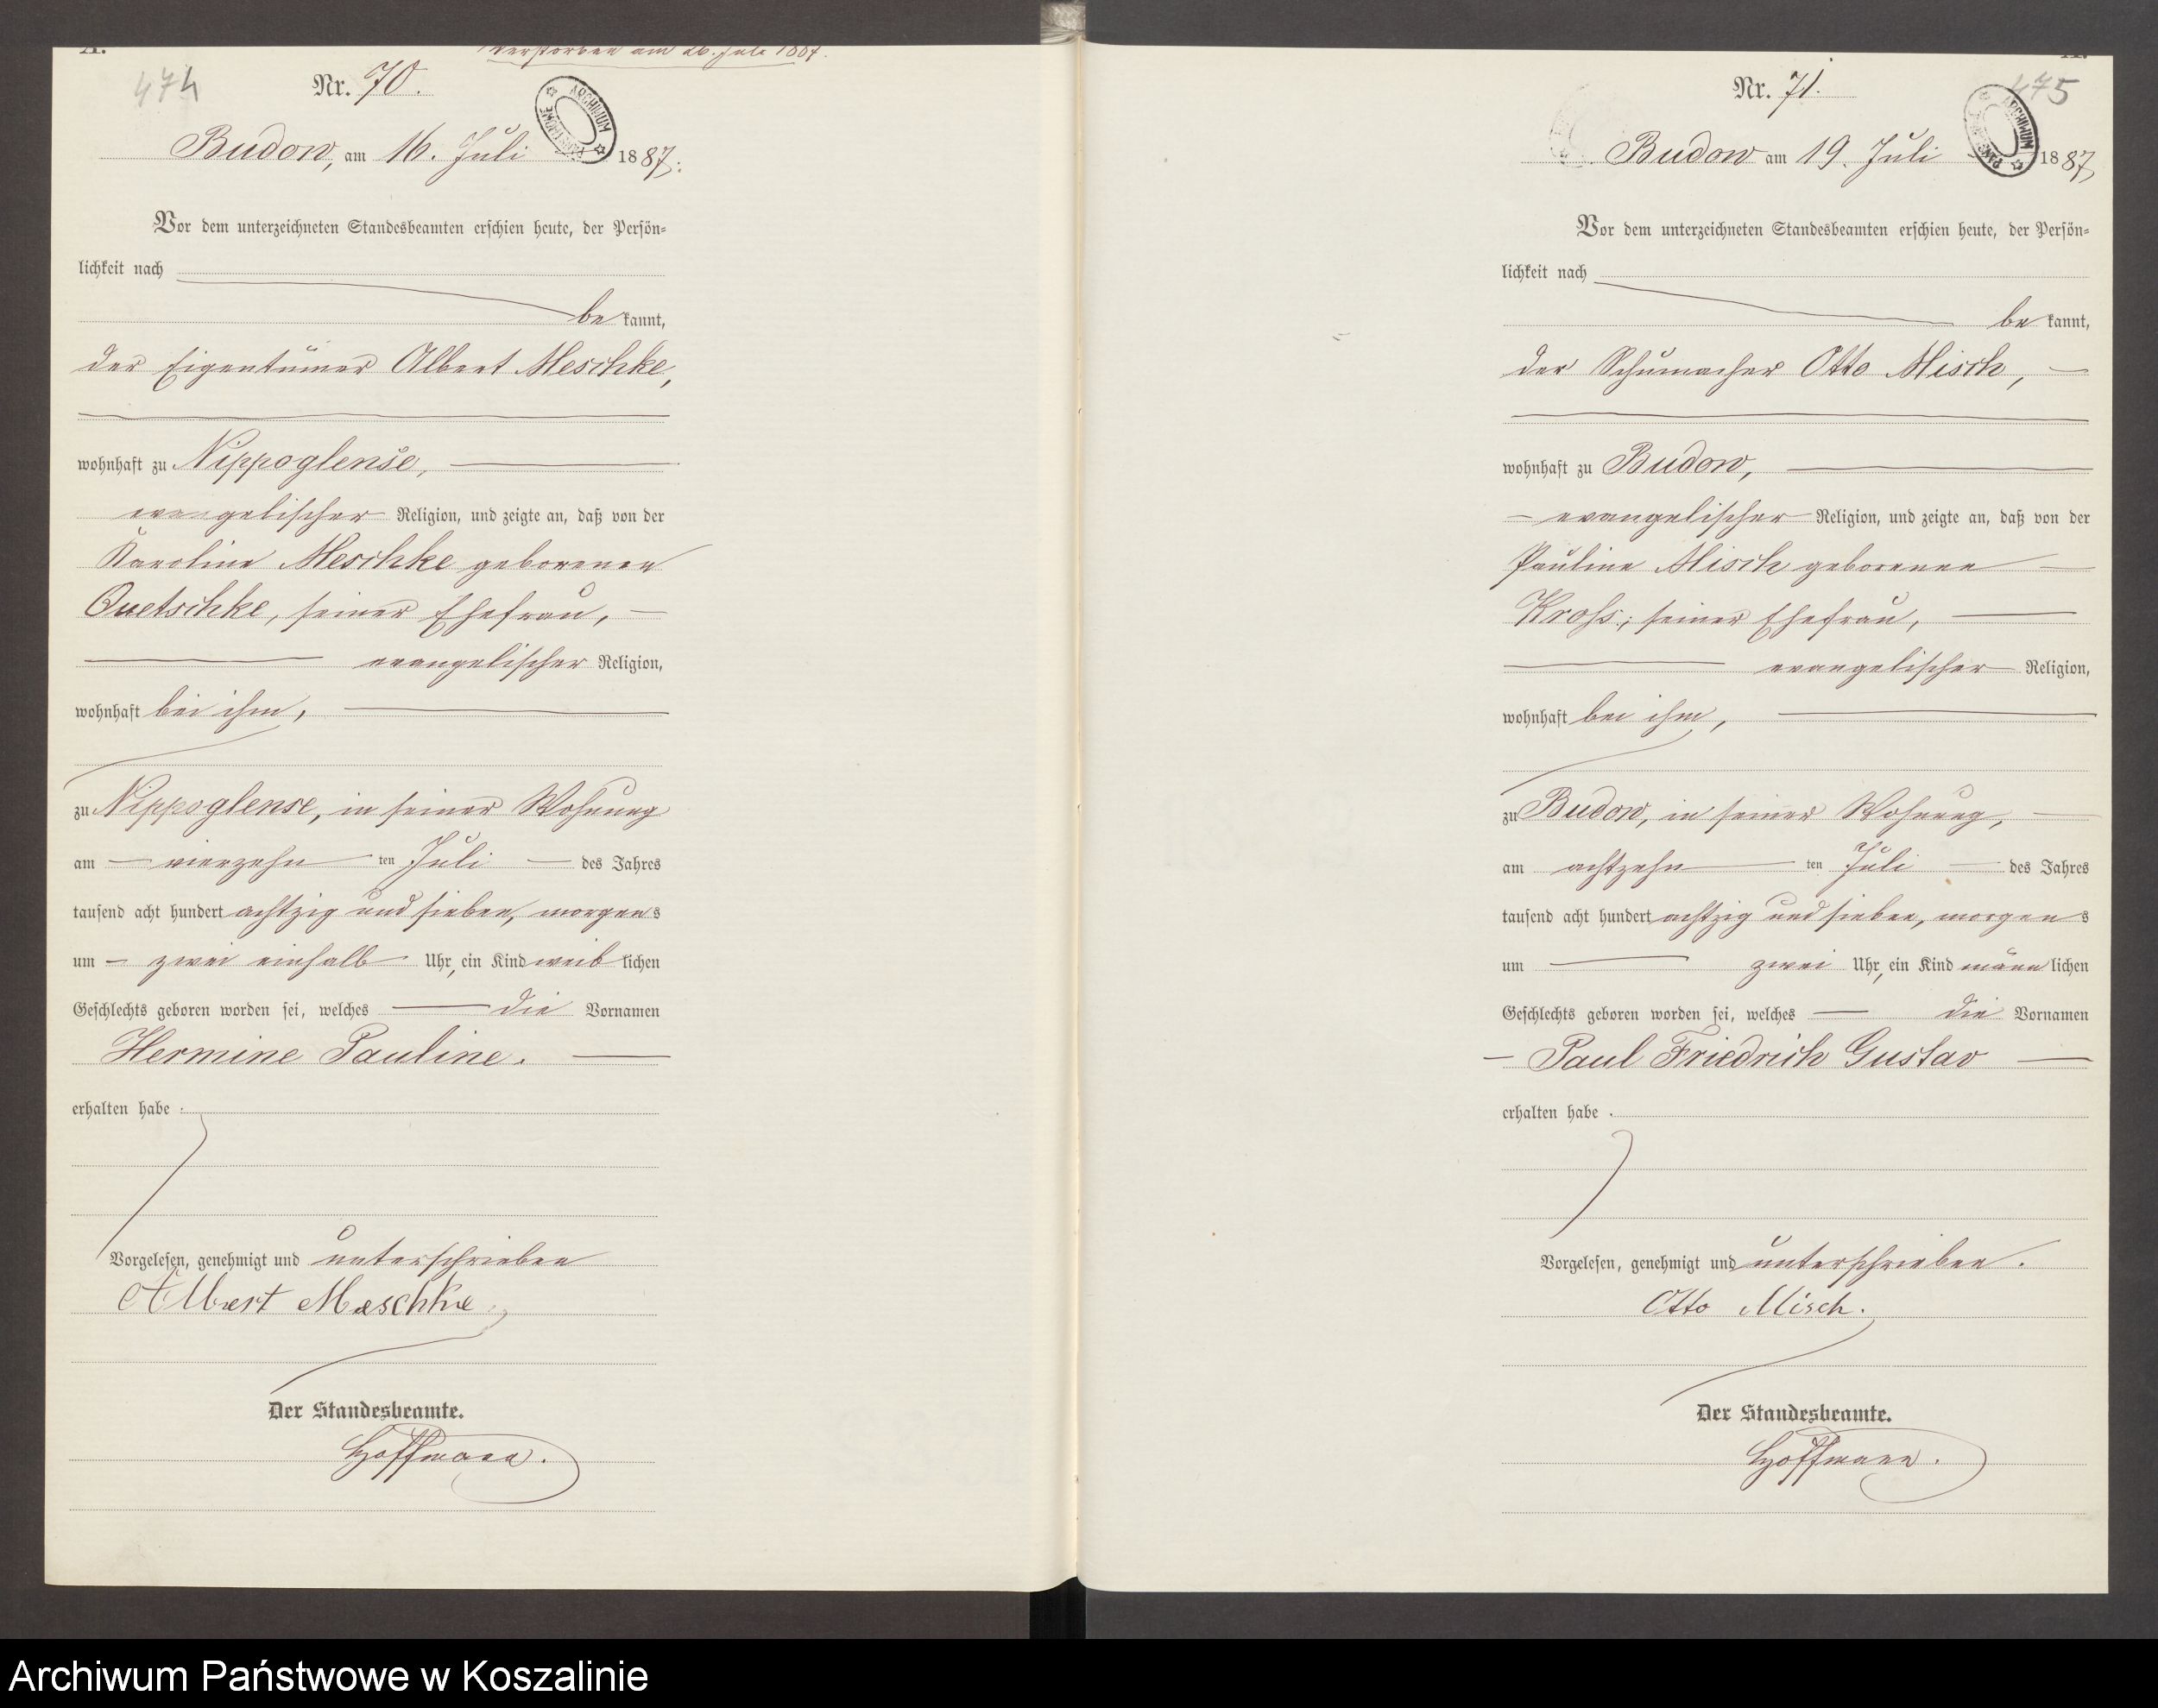 A.
Verstorben am 26. Juli 1887.
474
Nr. 70.
ARCHIWUM PAŃSTWOWE
Budow, am 16. Juli 1887.
Vor dem unterzeichneten Standesbeamten erschien heute, der Persön-
lichkeit nach
be kannt,
der Eigentümer Albert Meschke,
wohnhaft zu Nippoglense,
evangelischer Religion, und zeigte an, daß von der
Karoline Meschke geborenen
Quetschke, seiner Ehefrau,
evangelischer Religion,
wohnhaft bei ihm,
zu Nippoglense, in seiner Wohnung
am vierzehn ten Juli des Jahres
tausend acht hundert achtzig und sieben, morgens
um zwei einhalb Uhr, ein Kind weib lichen
Geschlechts geboren worden sei, welches die Vornamen
Hermine Pauline.
erhalten habe.
Vorgelesen, genehmigt und unterschrieben
Albert Meschke
Der Standesbeamte.
Hoffmann.
A.
475
Nr. 71.
ARCHIWUM PAŃSTWOWE
Budow am 19. Juli 1887
Vor dem unterzeichneten Standesbeamten erschien heute, der Persön-
lichkeit nach
be kannt,
der Schumacher Otto Misch,
wohnhaft zu Budow,
evangelischer Religion, und zeigte an, daß von der
Pauline Misch geborenen
Kroß, seiner Ehefrau,
evangelischer Religion,
wohnhaft bei ihm,
zu Budow, in seiner Wohnung,
am achtzehn ten Juli des Jahres
tausend acht hundert achtzig und sieben, morgens
um zwei Uhr, ein Kind männ lichen
Geschlechts geboren worden sei, welches die Vornamen
Paul Friedrich Gustav
erhalten habe.
Vorgelesen, genehmigt und unterschrieben.
Otto Misch.
Der Standesbeamte.
Hoffmann.
Archiwum Państwowe w Koszalinie